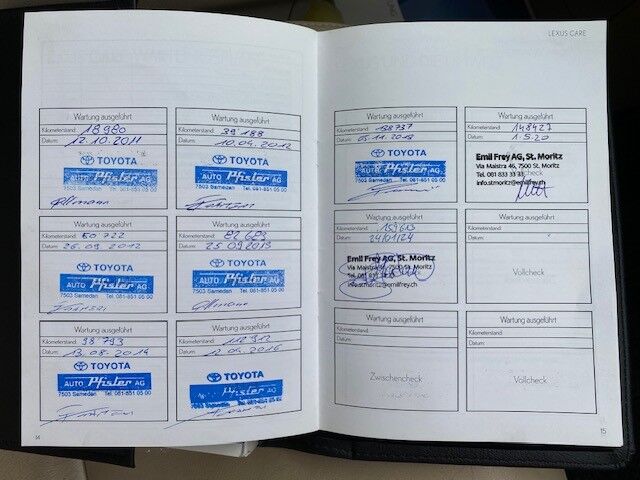 LEXUS CARE
Wartung ausgeführt
Kilometerstand: 18980
Datum: 12.10.2011
TOYOTA
AUTO Pfister AG
7503 Samedan Tel. 081-851 05 00
Wartung ausgeführt
Kilometerstand: 39'188
Datum: 10.04.2012
TOYOTA
AUTO Pfister AG
7503 Samedan Tel. 081-851 05 00
Wartung ausgeführt
Kilometerstand: 60 722
Datum: 26.09.2012
TOYOTA
AUTO Pfister AG
7503 Samedan Tel. 081-851 05 00
Wartung ausgeführt
Kilometerstand: 82 682
Datum: 25.09.2013
TOYOTA
AUTO Pfister AG
7503 Samedan Tel. 081-851 05 00
Wartung ausgeführt
Kilometerstand: 98 793
Datum: 13.08.2014
TOYOTA
AUTO Pfister AG
7503 Samedan Tel. 081-851 05 00
Wartung ausgeführt
Kilometerstand: 112 912
Datum: 12.04.2016
TOYOTA
AUTO Pfister AG
7503 Samedan Tel. 081-851 05 00
14
Wartung ausgeführt
Kilometerstand: 128'737
Datum: 05.11.2018
TOYOTA
AUTO Pfister AG
7503 Samedan Tel. 081-851 05 00
Wartung ausgeführt
Kilometerstand: 148427
Datum: 1.5.20
Emil Frey AG, St. Moritz
Via Maistra 46, 7500 St. Moritz
Tel. 081 833 33 33
info.stmoritz@emilfrey.ch
Wartung ausgeführt
Kilometerstand: 159613
Datum: 24/01/24
Emil Frey AG, St. Moritz
Via Maistra 7500 St. Moritz
Tel. 081
info.stmoritz@emilfrey.ch
Wartung ausgeführt
Kilometerstand:
Datum:
Vollcheck
Wartung ausgeführt
Kilometerstand:
Datum:
Zwischencheck
Wartung ausgeführt
Kilometerstand:
Datum:
Vollcheck
15